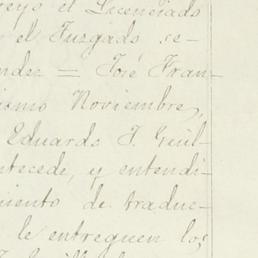 reyó el Licenciado
el Juzgado se-
ndez = José Fran-
ismo Noviembre,
Eduardo J. Guil-
ntecede, y entendi-
miento de traduc-
le entreguen los